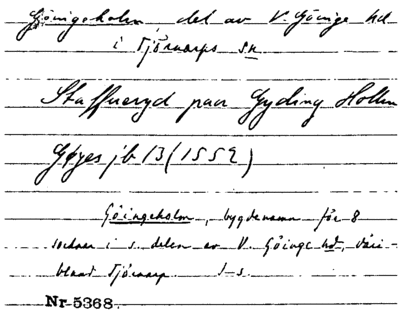 Göingeholm, del av V. Göinge hd
i Tjörnarps sn
Staffueryd paa Gyding Hollm
Gøyes jb 13 (1552)
Göingeholm, bygdenamn för 8
socknar i s. delen av V. Göinge hd, däri-
bland Tjörnarp. J-s.
Nr 5368.